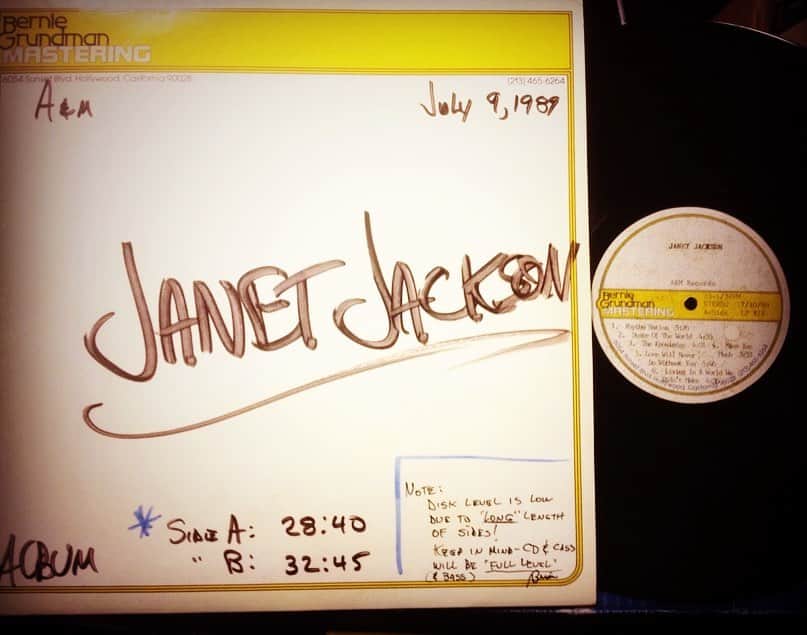 Bernie
Grundman
MASTERING
6054 Sunset Blvd. Hollywood, California 90028
(213) 465-6264
A&M
July 9, 1989
JANET JACKSON
* SIDE A: 28:40
" B: 32:45
ALBUM
NOTE:
DISK LEVEL IS LOW
DUE TO "LONG" LENGTH
OF SIDES!
KEEP IN MIND - CD & CASS
WILL BE "FULL LEVEL"
(& BASS)
JANET JACKSON
A&M Records
Bernie
Grundman
MASTERING
33-1/3RPM
STEREO
LP REF
1. Rhythm Nation
2. State Of The World 4:35
3. The Knowledge
4. Miss You
Much
5. Love Will Never
Do Without You
6. Living In A World We
Didn't Make